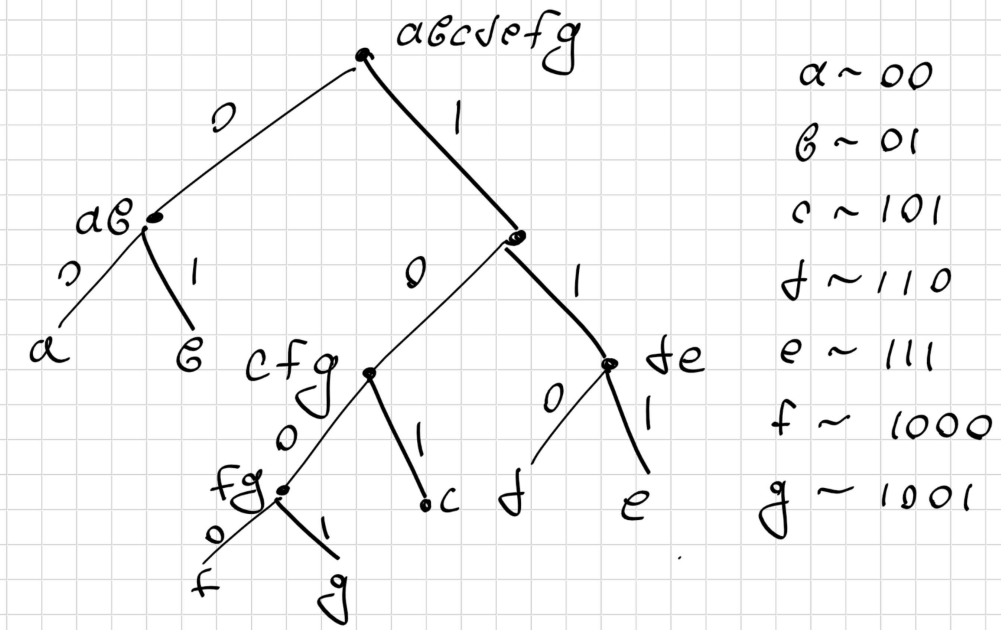 abcdefg
0
1
ab
0
1
0
1
a
b
cfg
de
0
1
0
1
fg
c
d
e
0
1
f
g
a ~ 00
b ~ 01
c ~ 101
d ~ 110
e ~ 111
f ~ 1000
g ~ 1001